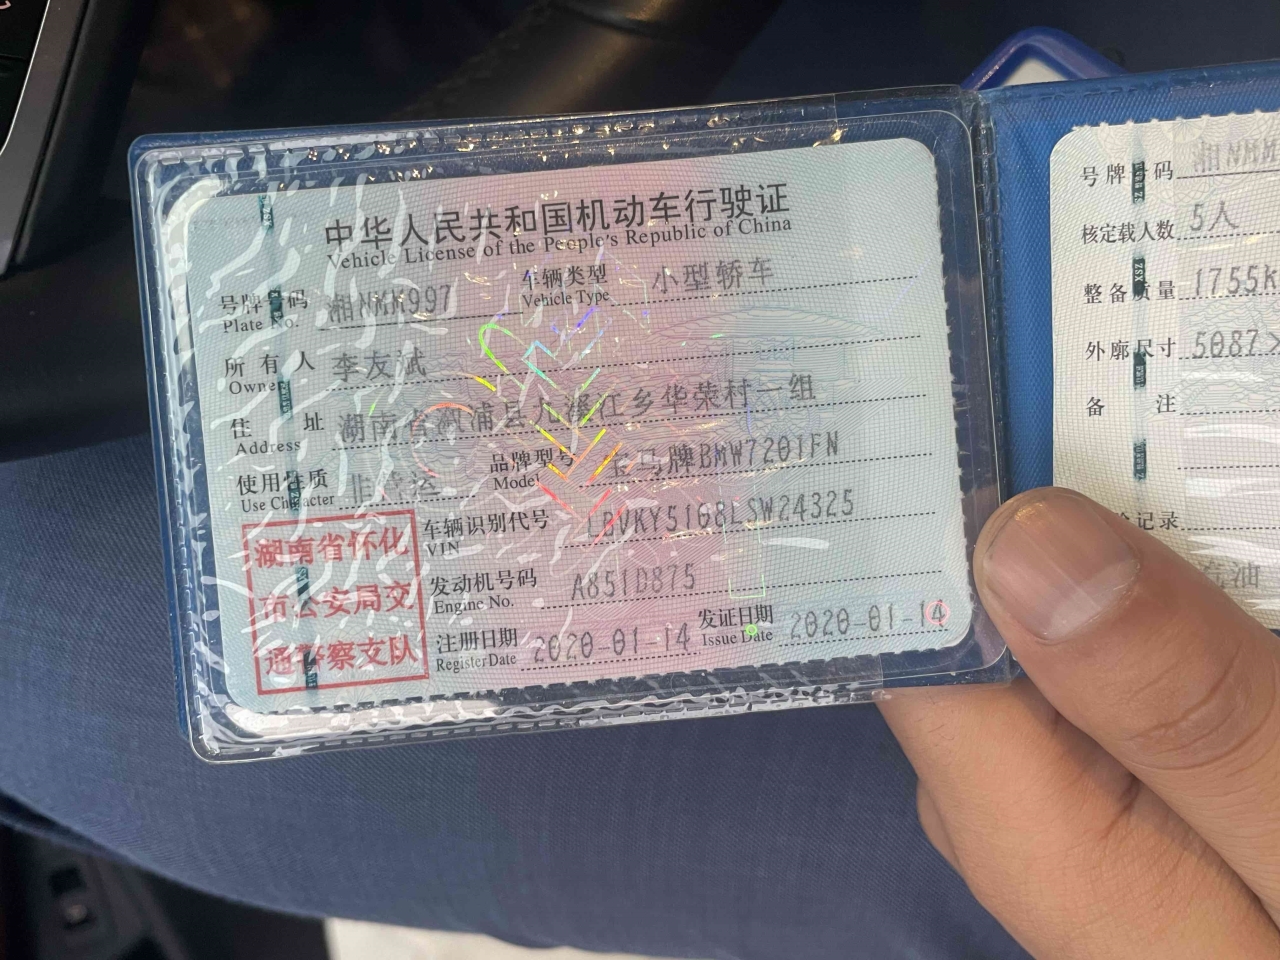 中华人民共和国机动车行驶证
Vehicle License of the People's Republic of China
号牌号码 湘NMM997 车辆类型 小型轿车
Plate No. Vehicle Type
所有人 李友斌
Owner
住址 湖南省溆浦县九溪江乡华荣村一组
Address
使用性质 非营运 品牌型号 宝马牌BMW7201FN
Use Character Model
车辆识别代号 LBVKY5168LSW24325
VIN
发动机号码 A851D875
Engine No.
注册日期 2020-01-14 发证日期 2020-01-14
Register Date Issue Date
湖南省怀化
市公安局交
通警察支队
号牌号码 湘NMM
核定载人数 5人
整备质量 1755K
外廓尺寸 5087×
备注
记录
汽油